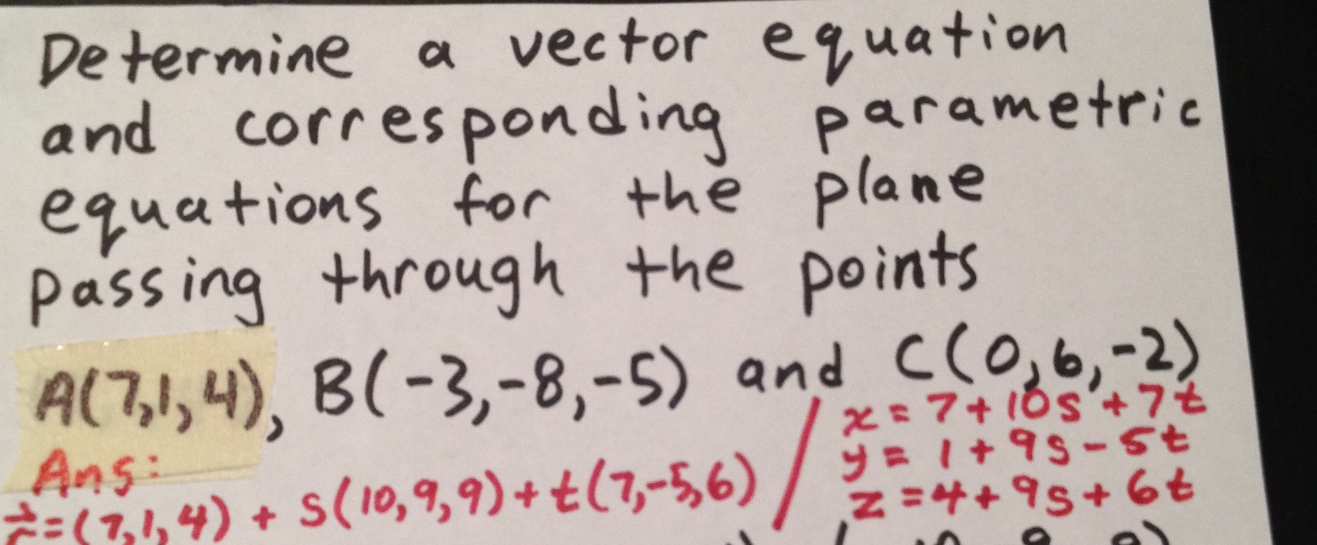 Determine a vector equation
and corresponding parametric
equations for the plane
passing through the points
A(7,1,4), B(-3,-8,-5) and C(0,6,-2)
Ans:
r⃗=(7,1,4) + s(10,9,9)+t(7,-5,6) /
x = 7+10s+7t
y = 1+9s-5t
z = 4+9s+6t